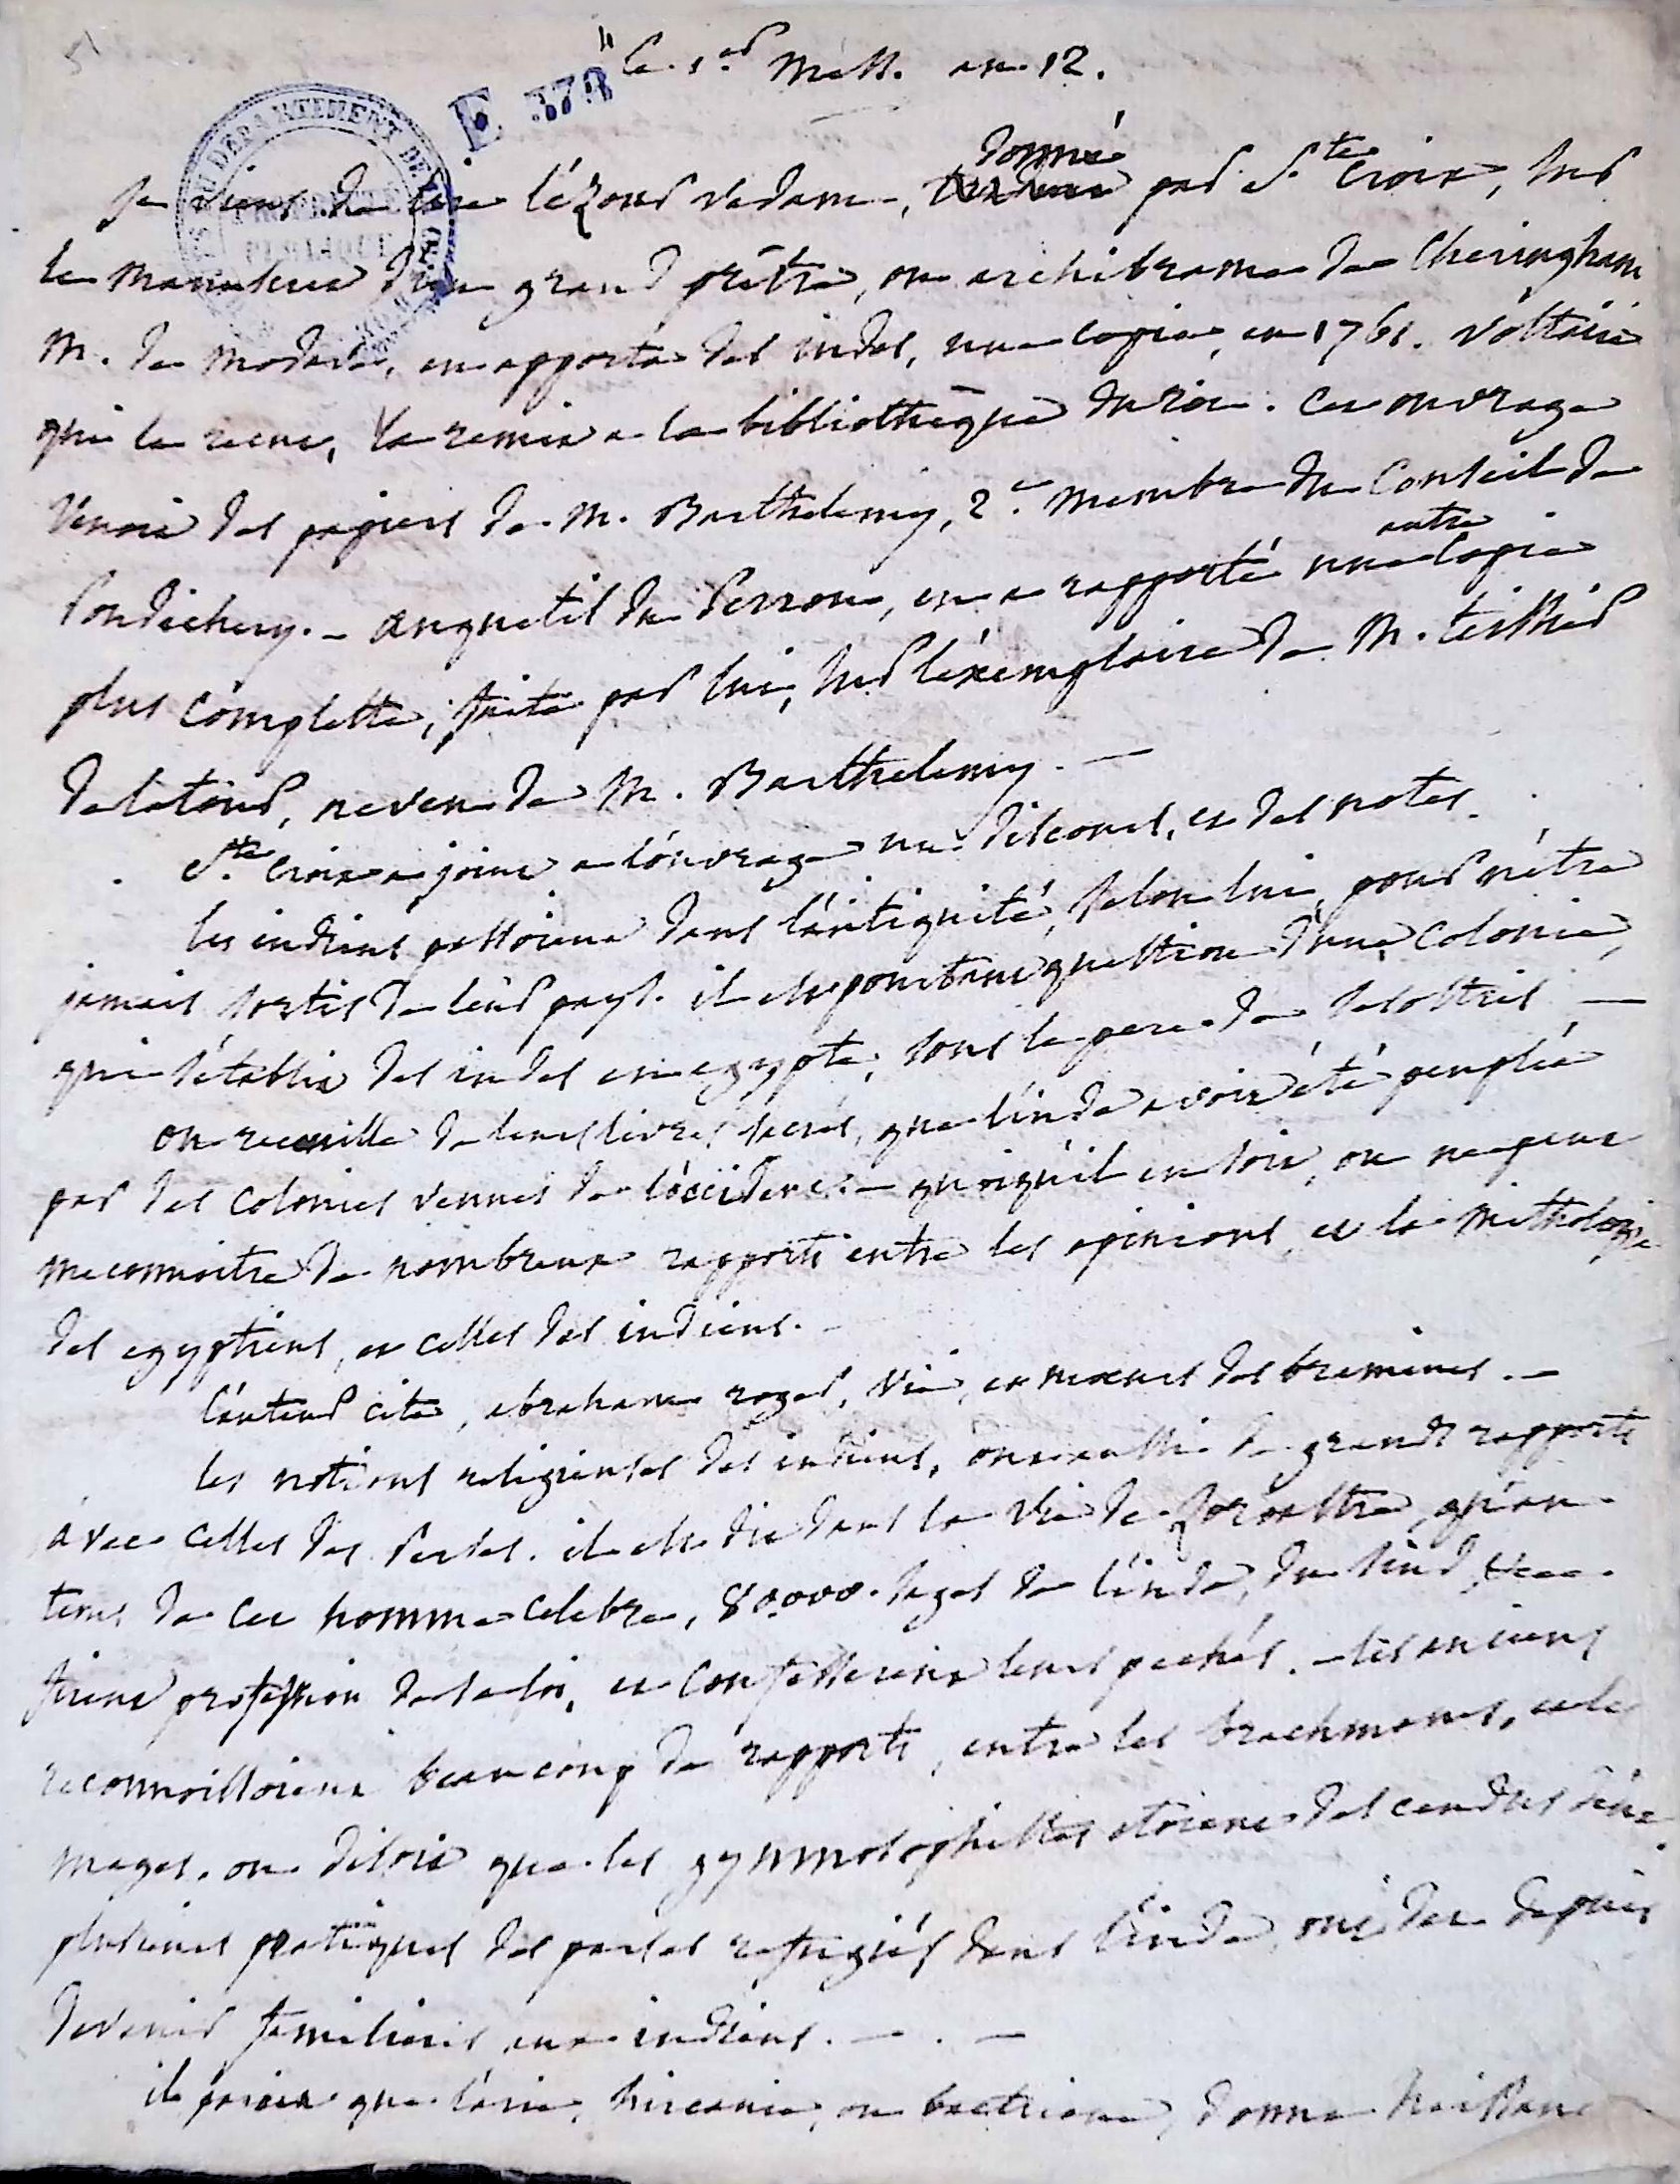 51
le 1.er mess. an 12.
E 378
donné
je viens de lire l'ézour vedam, par Ste Croix, sur
le manuscrit d'un grand prêtre, ou archibrame de Cheringham
M. de Modave, en apporta des indes, une copie, en 1761. voltaire
qui la recut, la remit a la bibliothèque du roi. cet ouvrage
venoit des papiers de M. Barthelemy, 2.e membre du Conseil de
autre
Pondichery. - anquetil du Perron, en a rapporté une copie
plus complette, faite par lui, sur l'éxemplaire de M. teissier
delatour, neveu de M. Barthelemy. -
Ste Croix a joint a l'ouvrage un discours, et des notes.
les indiens passoient dans l'antiquité, selon lui, pour n'être
jamais sortis de leur pays. il est pourtant question d'une colonie,
qui s'établit des indes en egypte, sous le pere de sesostris -
on recueille de leurs livres sacrés, que l'inde avoit été peuplée
par des colonies venues de l'occident. - quoiqu'il en soit, on ne peut
meconnoitre de nombreux rapports entre les opinions, et la mithologie
des egyptiens, et celles des indiens. -
l'auteur cite, abraham roger, vie, et moeurs des bramines. -
les notions religieuses des indiens, ont aussi de grands rapports
avec celles des Perses. il est dit dans la vie de zoroastre, qu'au
tems de cet homme celebre, 80000. sages de l'inde, du sind,
firent profession de sa loi, et confesserent leurs pechés. - les anciens
reconnoissoient beaucoup de rapports, entre les brachmanes, et les
mages. on disoit que les gymnosophistes étoient descendus d'eux.
plusieurs pratiques des parses refugiés dans l'inde, ont du depuis
devenir familieres aux indiens. - . -
il paroit que l'arie, hircanie, ou bactriane, donna naissance